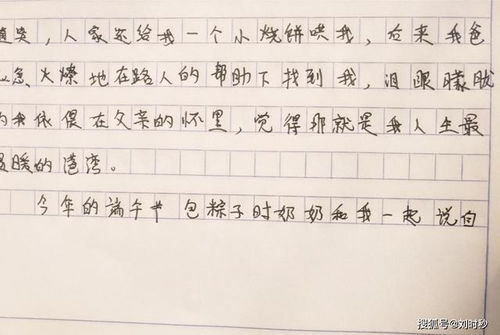 直哭，人家还给我一个小烧饼哄我，后来我爸
心急火燎地在路人的帮助下找到我，泪眼朦胧
的我依偎在父亲的怀里，觉得那就是我人生最
温暖的港湾。
今年的端午节 包粽子时奶奶和我一起 说白
搜狐号@刘时秒